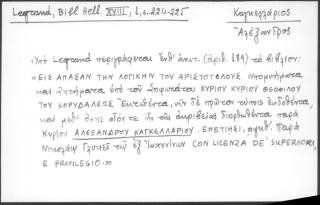 Legrand, Bibl Hell XVIII, I, σ. 224-225
Καγκελλάριος
Ἀλέξανδρος
Ὑπὸ Legrand περιγράφεται ἐνθ' ἀνωτ. (ἀριθ. 199) τὸ βιβλίον:
«ΕΙΣ ΑΠΑΣΑΝ ΤΗΝ ΛΟΓΙΚΗΝ ΤΟΥ ΑΡΙΣΤΟΤΕΛΟΥΣ Ὑπομνήματα
καὶ Ζητήματα ὑπὸ τοῦ Σοφωτάτου ΚΥΡΙΟΥ ΚΥΡΙΟΥ ΘΕΟΦΙΛΟΥ
ΤΟΥ ΚΟΡΥΔΑΛΕΩΣ Ἐκτεθέντα, νῦν δὲ πρῶτον τύποις ἐκδοθέντα,
καὶ μεθ' ὅσης οἷόν τε ἦν τῆς ἀκριβείας διορθωθέντα παρὰ
Κυρίου ΑΛΕΞΑΝΔΡΟΥ ΚΑΓΚΕΛΛΑΡΙΟΥ. ΕΝΕΤΙΗΣΙ, Παρὰ
Νικολάῳ Γλυκεῖ τῷ ἐξ Ἰωαννίνων CON LICENZA DE' SUPERIORI,
E PRIVILEGIO.»